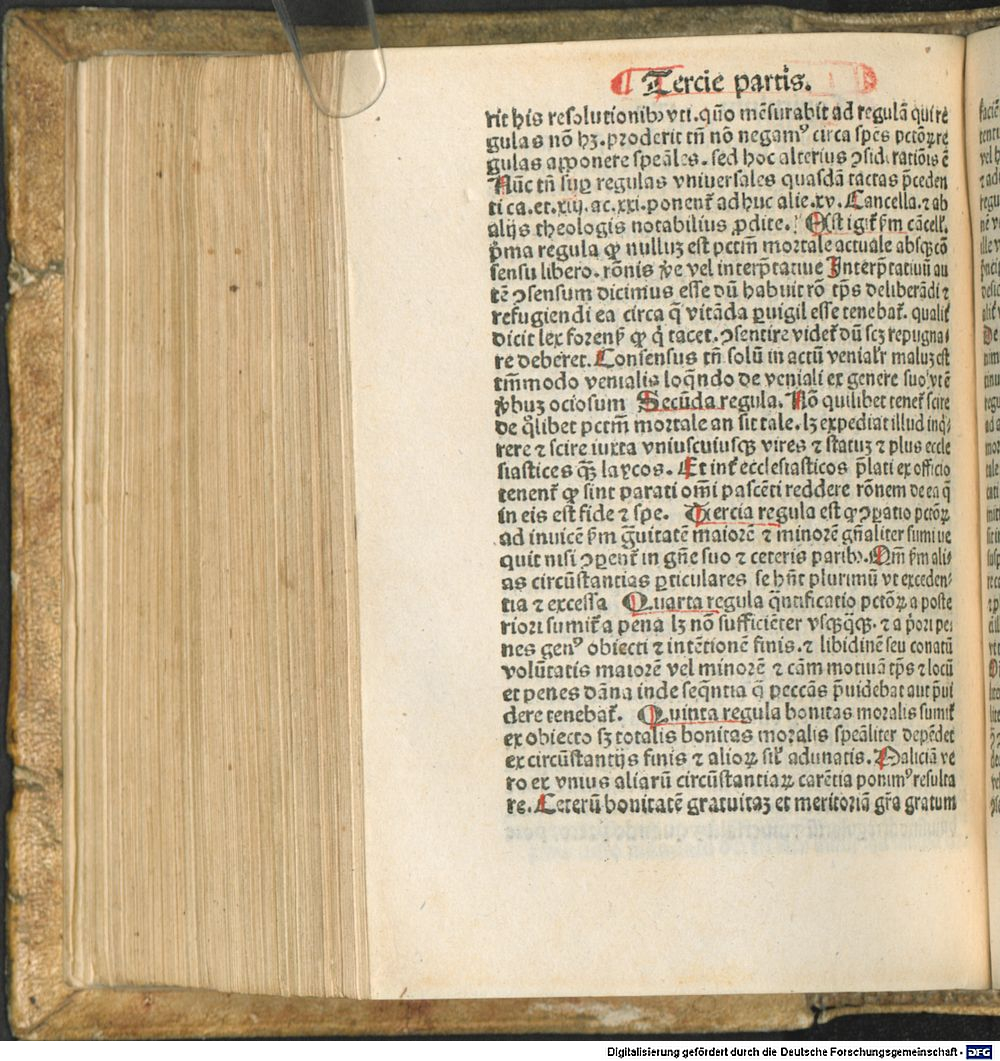 Tercie partis.
rit his resolutionibꝰ vti. quo mēsurabit ad regulā qui re
gulas nō hꝫ. proderit tn̄ nō negamꝰ circa spēs pctōꝝ re
gulas apponere speāles. sed hoc alterius ꝯsideratiōis ē
Nūc tn̄ suꝑ regulas vniuersales quasdā tactas p̄ceden
ti ca. et. xiij. ac. xxi. ponent̄ adhuc alie. xv. Cancella. ⁊ ab
alijs theologis notabilius ꝓdite. Est igit̄ ẜm cācell.
p̄ma regula ꝙ nulluꝫ est pctm̄ mortale actuale absqꝫ cō
sensu libero. rōnis ve vel interp̄tatiue Interp̄tatiuū au
tē ꝯsensum dicimus esse dū habuit rō tp̄s deliberādi ⁊
refugiendi ea circa q̄ vitāda ꝑuigil esse tenebat̄. qualit̄
dicit lex forens̄ ꝙ q̇ tacet. ꝯsentire videt̄ dū scꝫ repugna-
re deberet. Consensus tn̄ solū in actū venialr̄ maluꝫ est
tm̄modo venialis loq̄ndo de veniali ex genere suo vt ē
ꝟbuꝫ ociosum Secūda regula. Nō quilibet tenet̄ scire
de q̊libet pctm̄ mortale an sit tale. lꝫ expediat illud inq̇-
rere ⁊ scire iuxta vniuscuiusqꝫ vires ⁊ statuꝫ ⁊ plus eccle
siastices qꝫ̄ laycos. Et int̄ ecclesiasticos p̄lati ex officio
tenent̄ ꝙ sint parati om̄i pascēti reddere rōnem de ea q̄
in eis est fide ⁊ spe. Tiercia regula est ꝙ ꝯꝑatio pctōꝝ
ad inuicē ẜm grauitatē maiorē ⁊ minorē gn̄aliter sumi ne
quit nisi ꝯꝑent̄ in gn̄e suo ⁊ ceteris paribꝰ. Qm̄ ẜm ali-
as circūstantias ꝑticulares se hn̄t plurimū vt exceden-
tia ⁊ excessa Quarta regula q̄ntificatio pctōꝝ a poste
riori sumit̄ a pena lꝫ nō sufficiēter vsqꝫqꝫ̄qꝫ. ⁊ a p̄ori pe-
nes genꝰ obiecti ⁊ intētionē finis. ⁊ libidinē seu conatū
volūtatis maiorē vel minorē ⁊ cām motiuā tp̄s ⁊ locū
et penes dāna inde seq̄ntia q̄ peccās p̄uidebat aut p̄ui
dere tenebat̄. Quinta regula bonitas moralis sumit̄
ex obiecto sꝫ totalis bonitas moralis speāliter depēdet
ex circūstantijs finis ⁊ alioꝝ sil̄ adunatis. Maliciā ve
ro ex vnius aliarū circūstantiaꝝ carētia ponimꝰ resulta
re. Ceterū bonitatē gratuitaꝫ et meritoriā gr̄a gratum
Digitalisierung gefördert durch die Deutsche Forschungsgemeinschaft - DFG